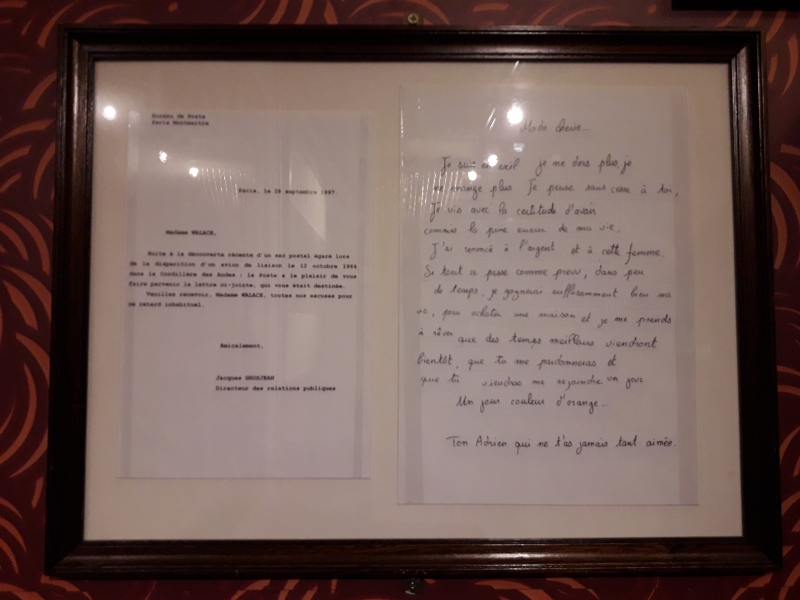 Bureau de Poste
Paris Montmartre
Paris, le 28 septembre 1997.
Madame WALACE,
Suite à la découverte récente d'un sac postal égaré lors
de la disparition d'un avion de liaison le 12 octobre 1964
dans la Cordillère des Andes ; la Poste a le plaisir de vous
faire parvenir la lettre ci-jointe, qui vous était destinée.
Veuillez recevoir, Madame WALACE, toutes nos excuses pour
ce retard inhabituel.
Amicalement,
Jacques GROSJEAN
Directeur des relations publiques
Mado chérie...
Je suis en exil je ne dors plus, je
ne mange plus. Je pense sans cesse à toi,
Je vis avec la certitude d'avoir
commis la pire erreur de ma vie.
J'ai renoncé à l'argent et à cette femme.
Si tout ce passe comme prévu, dans peu
de temps, je gagnerai suffisamment bien ma
vie, pour acheter une maison et je me prends
à rêver que des temps meilleurs viendront
bientôt, que tu me pardonneras et
que tu viendras me rejoindre un jour
Un jour couleur d'orange...
Ton Adrien qui ne t'as jamais tant aimée.